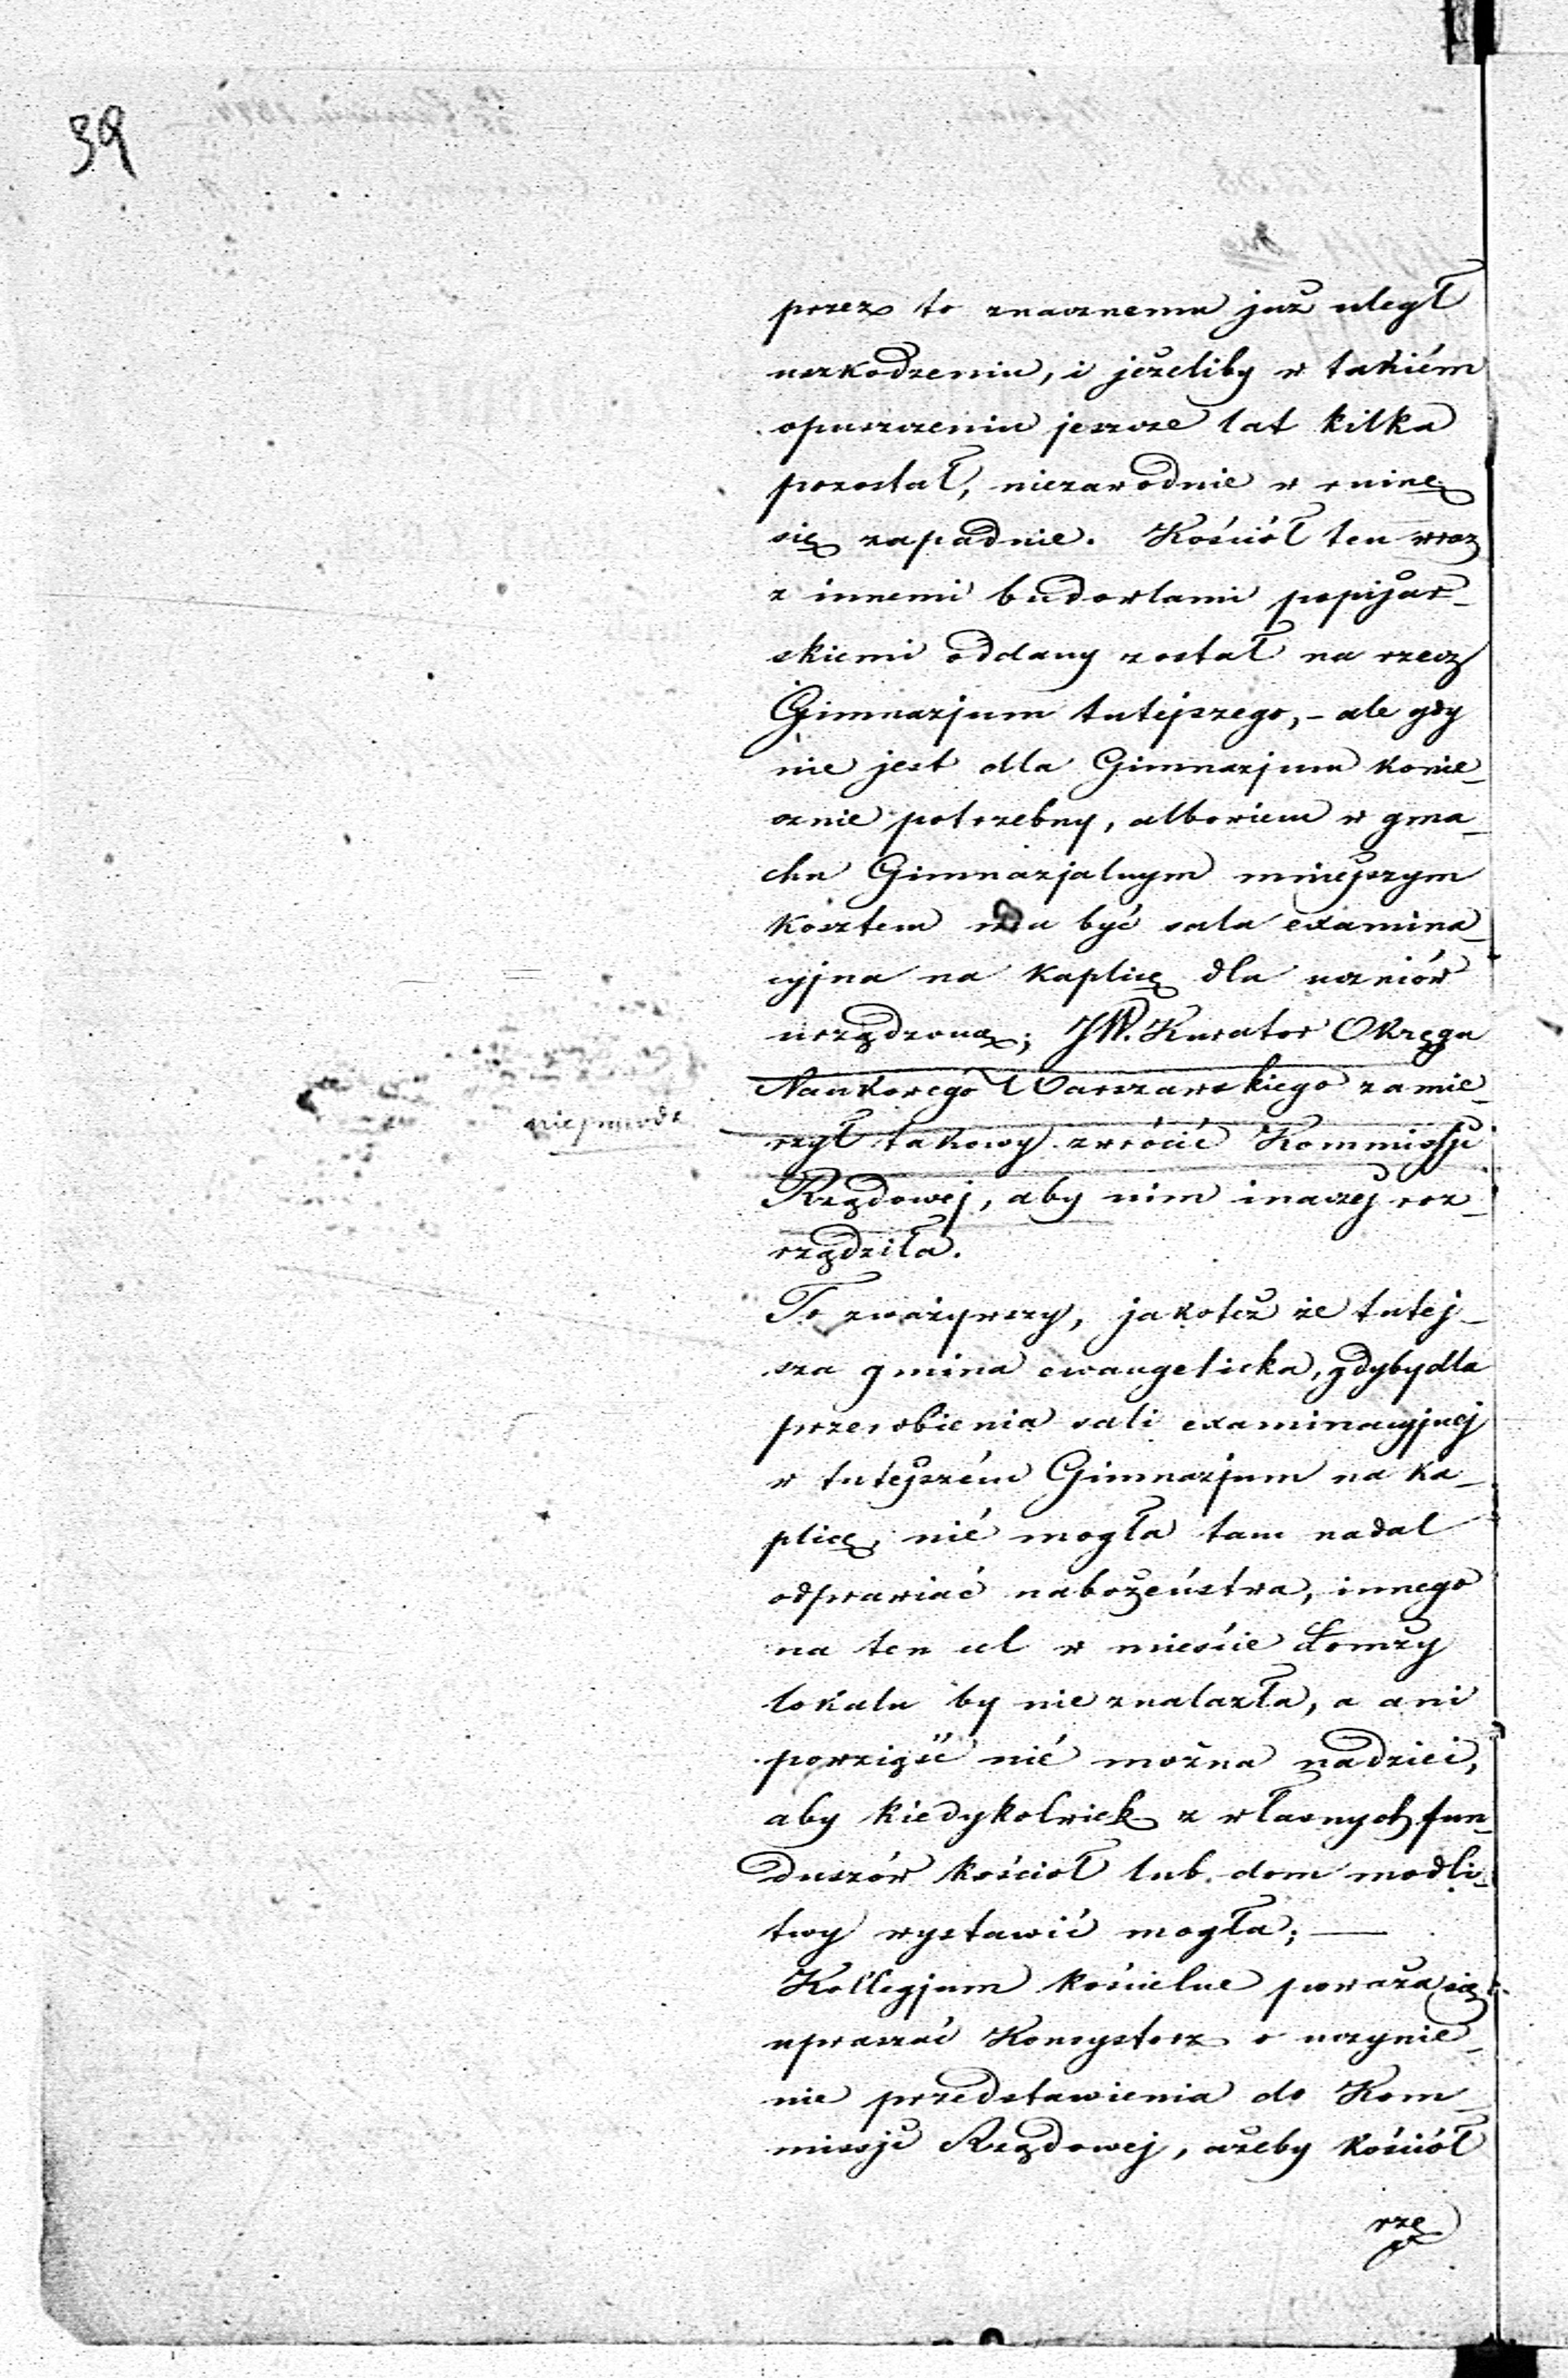 39
przez to znacznemu już uległ
uszkodzeniu, i jeżeliby w takiém
opuszczeniu jeszcze lat kilka
pozostał, niezawodnie w ruinę
się zapadnie. Kościół ten wraz
z innemi budowlami popijar-
skiemi oddany został na rzecz
Gimnazjum tutejszego, - ale gdy
nie jest dla Gimnazjum konie-
cznie potrzebny, albowiem w gma-
chu Gimnazjalnym mniejszym
kosztem ma być sala examina-
cyjna na kaplicę dla uczniów
urządzoną; JW. Kurator Okręgu
Naukowego Warszawskiego zamie-
rzył takowy zwrócić Kommissji
Rządowej, aby nim inaczej roz-
rządziła.
To zważywszy, jakoteż że tutej-
sza gmina ewangelicka, gdyby dla
przerobienia sali examinacyjnej
w tutejszém Gimnazjum na ka-
plicę, nié mogła tam nadal
odprawiać nabożeństwa, innego
na ten cel w mieście Łomży
lokalu by nie znalazła, a ani
powziąść nié można nadziei,
aby kiedykolwiek z własnych fun-
duszów kościoł lub dom modli-
twy wystawić mogła; —
Kollegjum kościelne poważa się
upraszać Konsystorz o uczynie-
nie przedstawienia do Kom-
missji Rządowej, ażeby kościół
rze